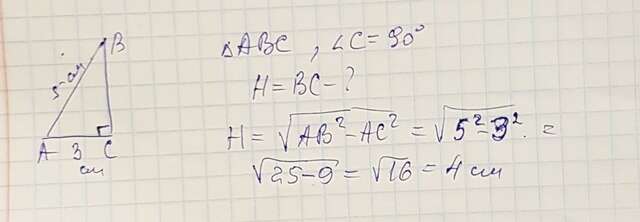 B
5 см
A 3 C
см
△ABC, ∠C = 90°
H = BC - ?
H = √(AB² - AC²) = √(5² - 3²) =
√(25 - 9) = √16 = 4 см